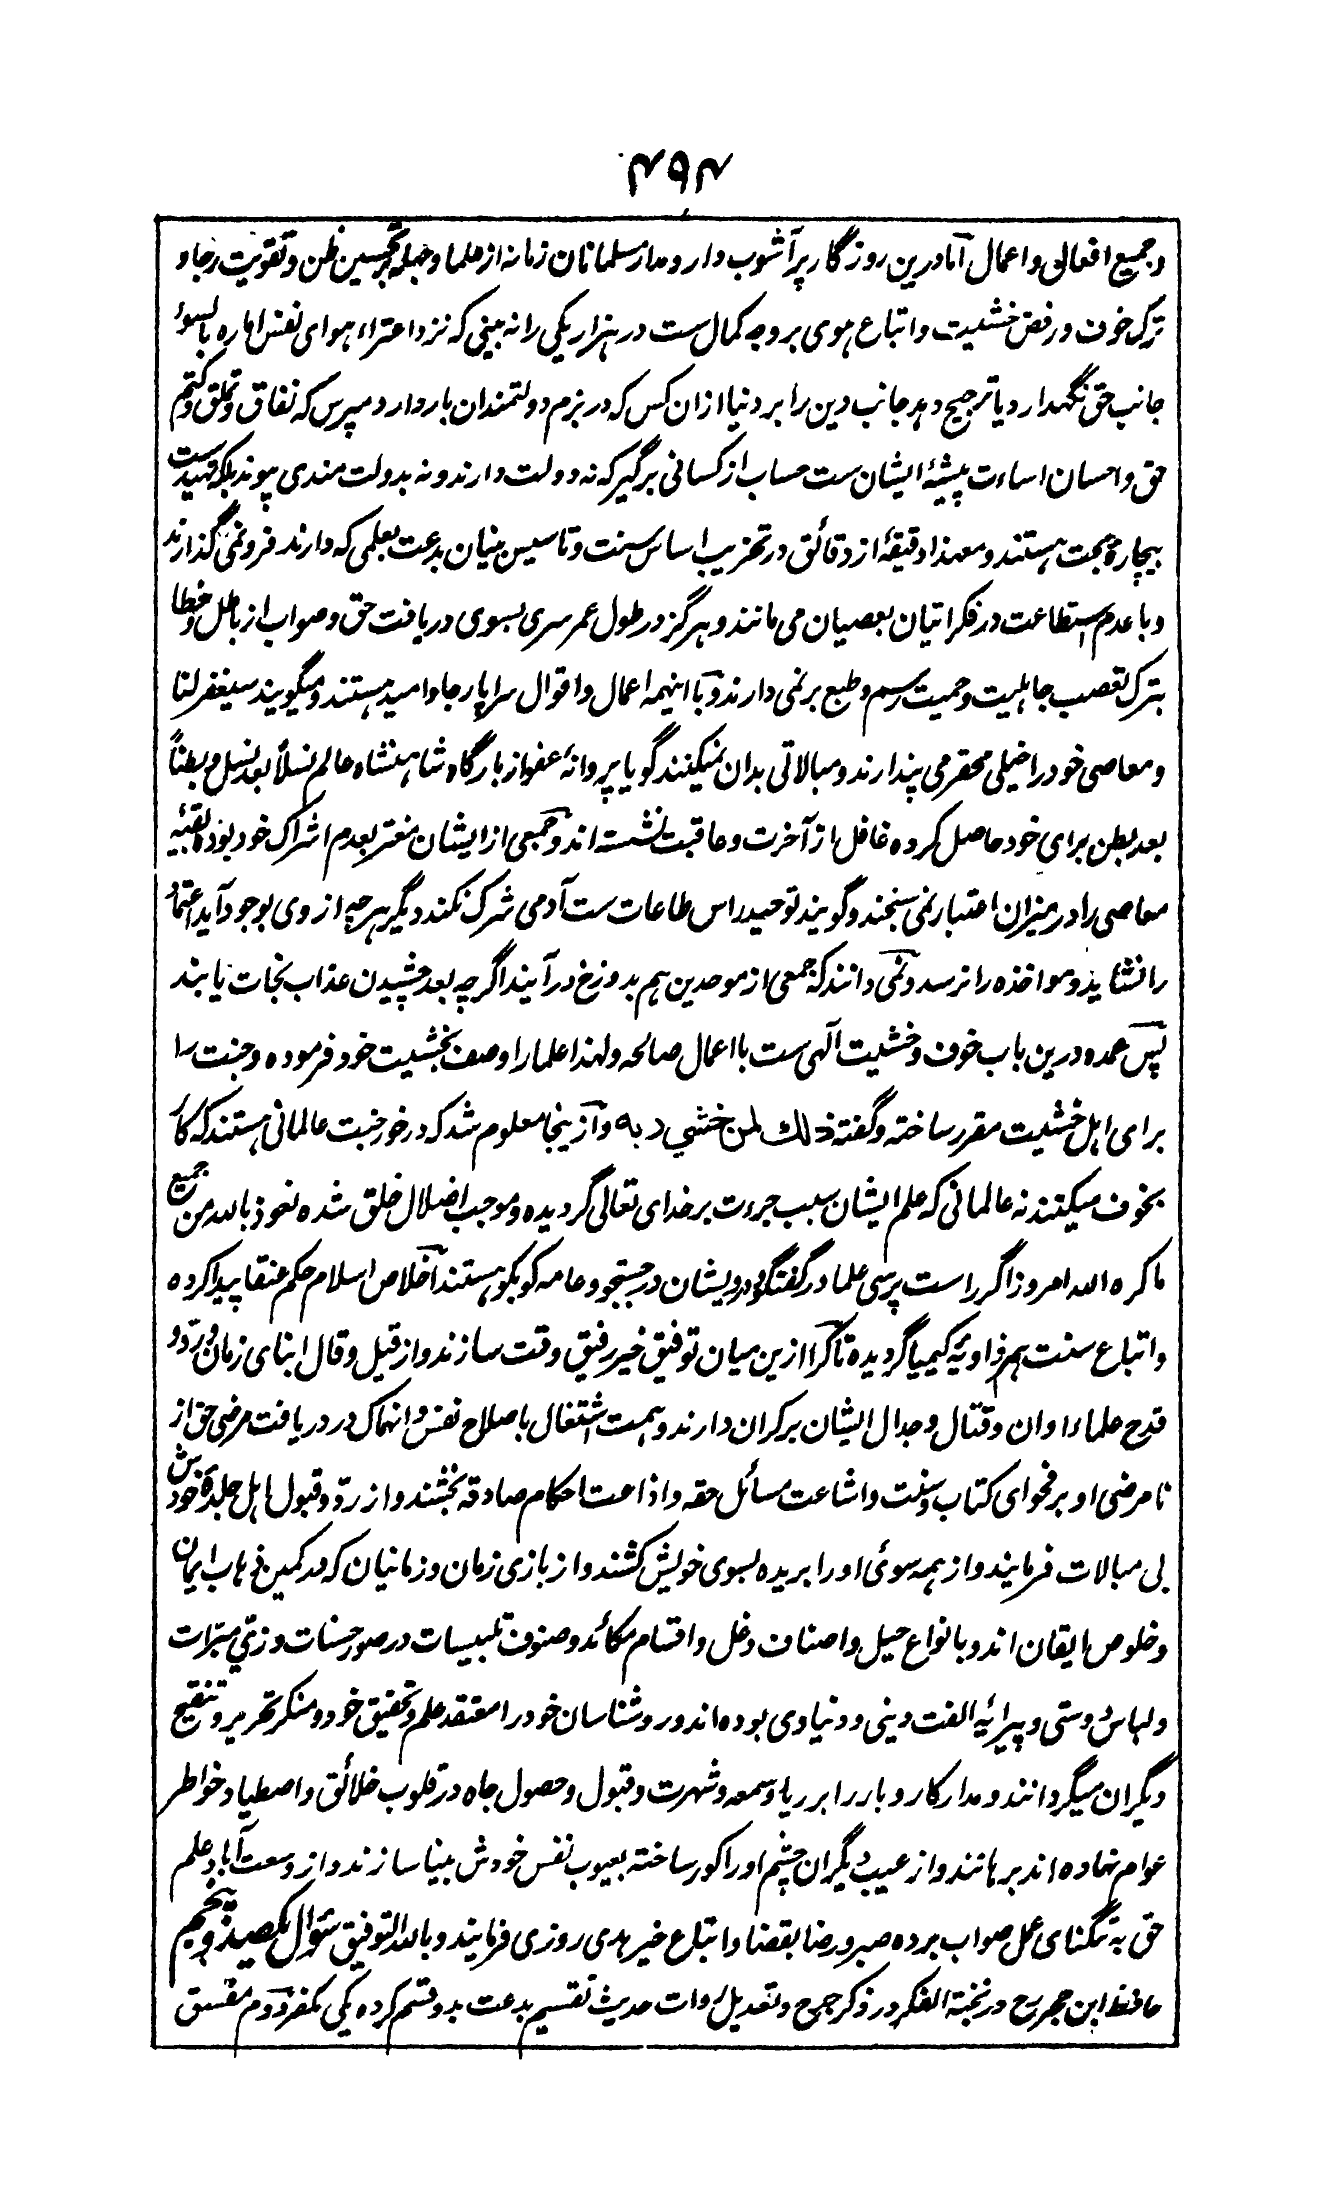 ۴۹۴
و جمیع افعالی و اعمال آما درین روزگار پر آشوب دار و مدار مسلمانان زمانه از علما و جمله بر تحسین ظن و تقویت رجا و
ترک خوف و رفض خشیت و اتباع هوی بر وجه کمال ست در هزار یکی را نه بینی که نزد اعتراء هوای نفس اماره بالسوء
جانب حق نگهدارد یا ترجیح دهد جانب دین را بر دنیا ازان کس که در بزم دولتمندان بار دارد مپرس که نفاق و تملق و کتم
حق و احسان اساءت پیشۀ ایشان ست حساب از کسانی برگیر که نه دولت دارند و نه بدولت مندی پیوند بلکه تهیدست
بیچاره بحت هستند و معهذا دقیقۀ از دقائق در تخریب اساس سنت و تاسیس بنیان بدعت بعلمی که دارند فرو نمی گذارند
و با عدم استطاعت در فکر اتیان بعصیان می مانند و هرگز در طول عمر سری بسوی دریافت حق و صواب از باطل و خطا
بترک تعصب جاهلیت و حمیت رسم و طبع بر نمی دارند و با اینهمه اعمال و اقوال سراپا رجا و امید هستند و میگویند سیغفر لنا
و معاصی خود را خیلی محقر می پندارند و مبالاتی بدان نمیکنند گویا پروانۀ عفو از بارگاه شاهنشاه عالم نسلاً بعد نسل و بطناً
بعد بطن برای خود حاصل کرده غافل از آخرت و عاقبت نشسته اند و جمعی از ایشان مغتر بعدم اشراک خود بوده بقیۀ
معاصی را در میزان اعتبار نمی سنجند و گویند توحید راس طاعات ست آدمی شرک نکند دیگر هر چه از وی بوجود آید اعتماد
را نشاید و مواخذه را نرسد و نمی دانند که جمعی از موحدین هم بدوزخ در آیند اگرچه بعد چشیدن عذاب نجات یابند
پس عمده درین باب خوف و خشیت آلهی ست با اعمال صالحه و لهذا علما را وصف بخشیت خود فرموده و جنت را
برای اهل خشیت مقرر ساخته و گفته ذلك لمن خشي ربه و از ینجا معلوم شد که در خور جنت عالمانی هستند که کار
بخوف میکنند نه عالمانی که علم ایشان سبب جرءت بر خدای تعالی گردیده و موجب اضلال خلق شده نعوذ بالله من جمیع
ما کره الله امروز اگر راست پرسی علما در گفتگو و درویشان در جستجو و عامه کو بکو هستند آخلاص اسلام حکم عنقا پیدا کرده
و اتباع سنت هم زاویۀ کیمیا گردیده تا کرا ازین میان توفیق خیر رفیق وقت سازند و از قیل و قال ابنای زمان و رد و
قدح علماء اوان و قتال و جدال ایشان بر کران دارند و همت اشتغال باصلاح نفس و انهماک در دریافت مرضی حق از
نا مرضی او بر فحوای کتاب و سنت و اشاعت مسائل حقه و اذاعت احکام صادقه بخشند و از رد و قبول اهل جلدۀ خودش
بی مبالات فرمایند و از همه سوئ او را بریده بسوی خویش کشند و از بازی زمان و زمانیان که در کمین ذهاب ایمان
و خلوص ایقان اند و بانواع حیل و اصناف دغل و اقسام مکائد و صنوف تلبیسات در صور حسنات و زی مبرّات
و لباس دوستی و پیرایۀ الفت دینی و دنیاوی بوده اند و روشناسان خود را معتقد علم و تحقیق خود و منکر تحریر و تنقیح
دیگران میگردانند و مدار کار و بار را بر ریا و سمعه و شهرت و قبول و حصول جاه در قلوب خلائق و اصطیاد خواطر
عوام نهاده اند برهانند و از عیب دیگران چشم او را کور ساخته بعیوب نفس خودش بینا سازند و از وسعت آباد علم
حق به تنگنای عمل صواب برده صبر و رضا بقضا و اتباع خیر هدی روزی فرمایند و بالله التوفیق سؤال یکصد و پنجم
حافظ ابن حجر رح در نخبة الفکر در ذکر جرح و تعدیل روات حدیث تقسیم بدعت بدو قسم کرده یکی مکفر دوم مفسق